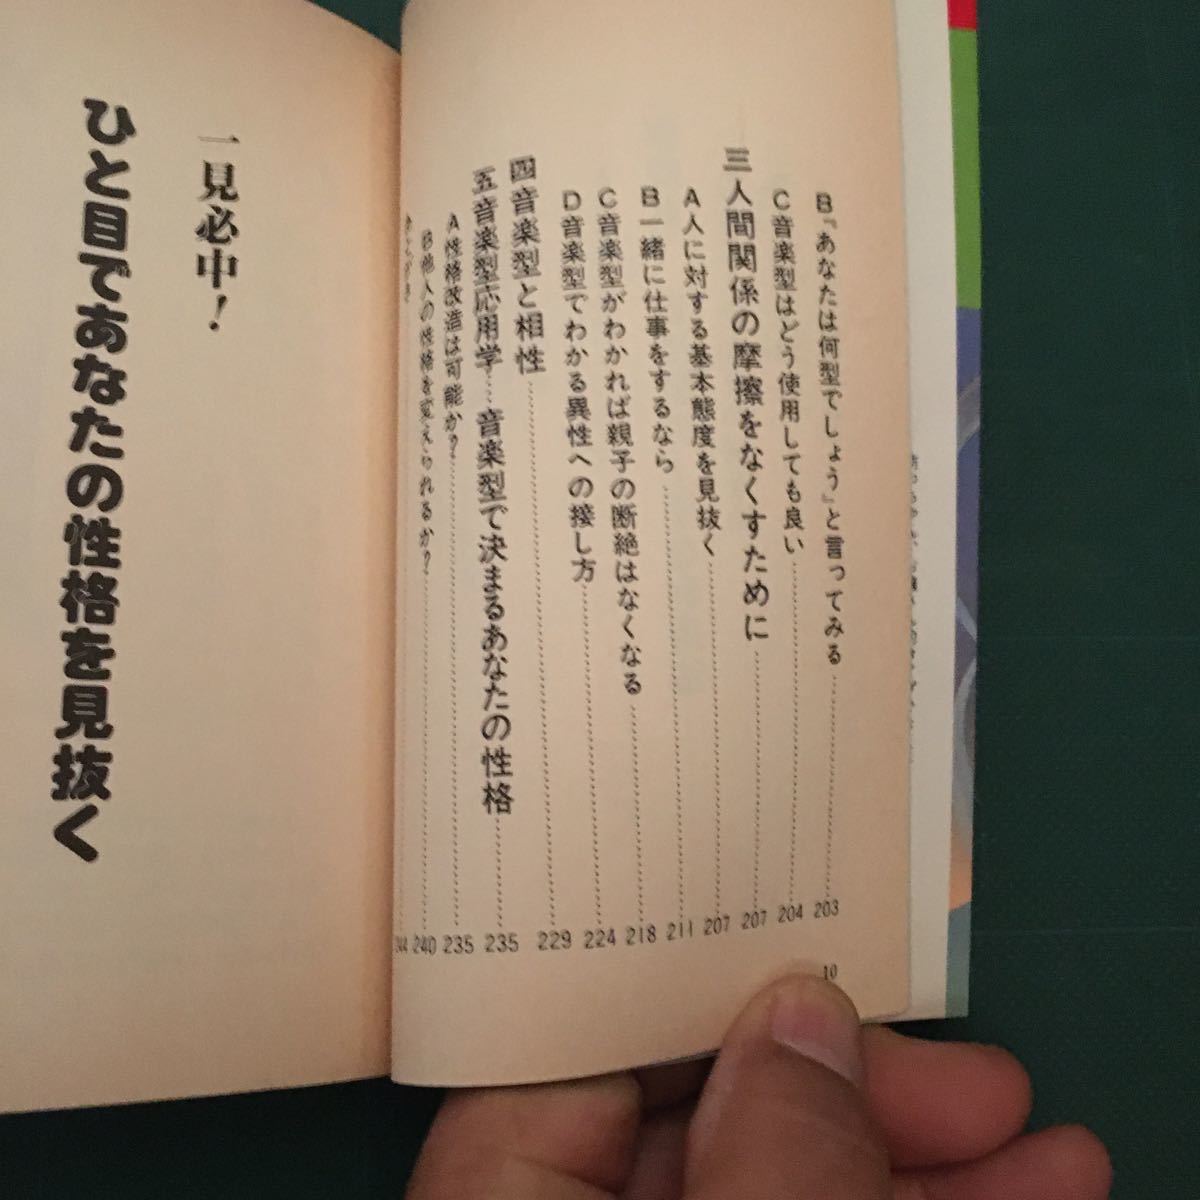 B『あなたは何型でしょう』と言ってみる……203
C音楽型はどう使用しても良い……204
三人間関係の摩擦をなくすために……207
A人に対する基本態度を見抜く……207
B一緒に仕事をするなら……211
C音楽型がわかれば親子の断絶はなくなる……218
D音楽型でわかる異性への接し方……224
四音楽型と相性……229
五音楽型応用学…音楽型で決まるあなたの性格……235
A性格改造は可能か?……235
B他人の性格を変えられるか?……240
あとがき……244
10
一見必中!
ひと目であなたの性格を見抜く